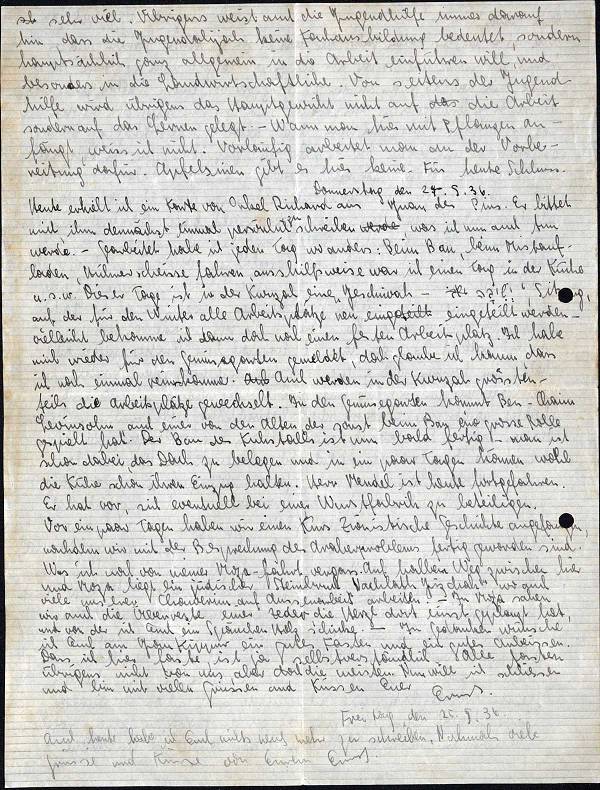 sehr viel. Übrigens weist auch die Jugendhilfe immer darauf
hin, dass die Jugendalijah keine Fachausbildung bedeutet, sondern
hauptsächlich ganz allgemein in die Arbeit einführen will, und
besonders in die Landwirtschaftliche. Von seitens der Jugend-
hilfe wird übrigens das Hauptgewicht nicht auf das die Arbeit
sondern auf das Lernen gelegt. - Wann man hier mit Pflanzen an-
fängt, weiss ich nicht. Vorläufig arbeitet man an der Vorbe-
reitung dafür. Apfelsinen gibt es hier keine. Für heute Schluss.
Donnerstag den 24.9.36.
Heute erhielt ich ein Karte von Onkel Richard aus Juan des Pins. Er bittet
mich ihm demnächst einmal persönlich zu schreiben was ich nun
werde. - Gearbeitet habe ich jeden Tag wo anders: Beim Bau, beim Mistauf-
laden, Hühnerscheisse fahren aushilfsweise war ich einen Tag in der Küche
u.s.w. Dieser Tage ist in der Kwuzah eine "Jeschiwah - ישיבה" Sitzung,
auf der für den Winter alle Arbeitsplätze eingeteilt werden -
vielleicht bekomme ich dann doch noch einen festen Arbeitsplatz. Ich habe
mich wieder für den Gemüsegarten gemeldet, doch glaube ich kaum dass
ich noch einmal reinkomme. Auch werden in der Kwuzah grössten-
teils die Arbeitsplätze gewechselt. In den Gemüsegarten kommt Ben-Chaim
Lewinsohn und einer von den Alten der sonst beim Bau eine grosse Rolle
gespielt hat. Der Bau des Kuhstalls ist nun bald fertig - man ist
schon dabei das Dach zu belegen und in ein paar Tagen können wohl
die Kühe schon ihren Einzug halten. Herr Mendel ist heute fortgefahren.
Er hat vor, sich eventuell bei einer Wurstfabrik zu beteiligen.
Vor ein paar Tagen haben wir einen Kurs Zionistische Geschichte angefangen,
nachdem wir mit der Besprechung des Araberproblems fertig geworden sind.
Was ich noch von meiner Moza-fahrt vergass: Auf halbem Weg zwischen hier
und Moza liegt ein jüdischer Steinbruch wo auch
viele unserer Chawerim auf Aussenarbeit arbeiten. - In Moza sahen
wir auch die Überreste einer Zeder die Herzl dort einst gepflanzt hat,
und von der ich Euch ein Spänchen Holz schicke. - In Gedanken wünsche
ich Euch am Jom Kippur ein gutes Fasten und ein gutes Anbeissen.
Dass ich hier faste ist ja selbstverständlich. Alle fasten
übrigens nicht von uns aber doch die meisten. Nun will ich schliessen
und bin mit vielen Grüssen und Küssen Euer
Ernst.
Freitag, den 25.9.36.
Auch heute habe ich Euch nichts mehr zu schreiben. Nochmals viele
Grüsse und Küsse von Eurem Ernst.